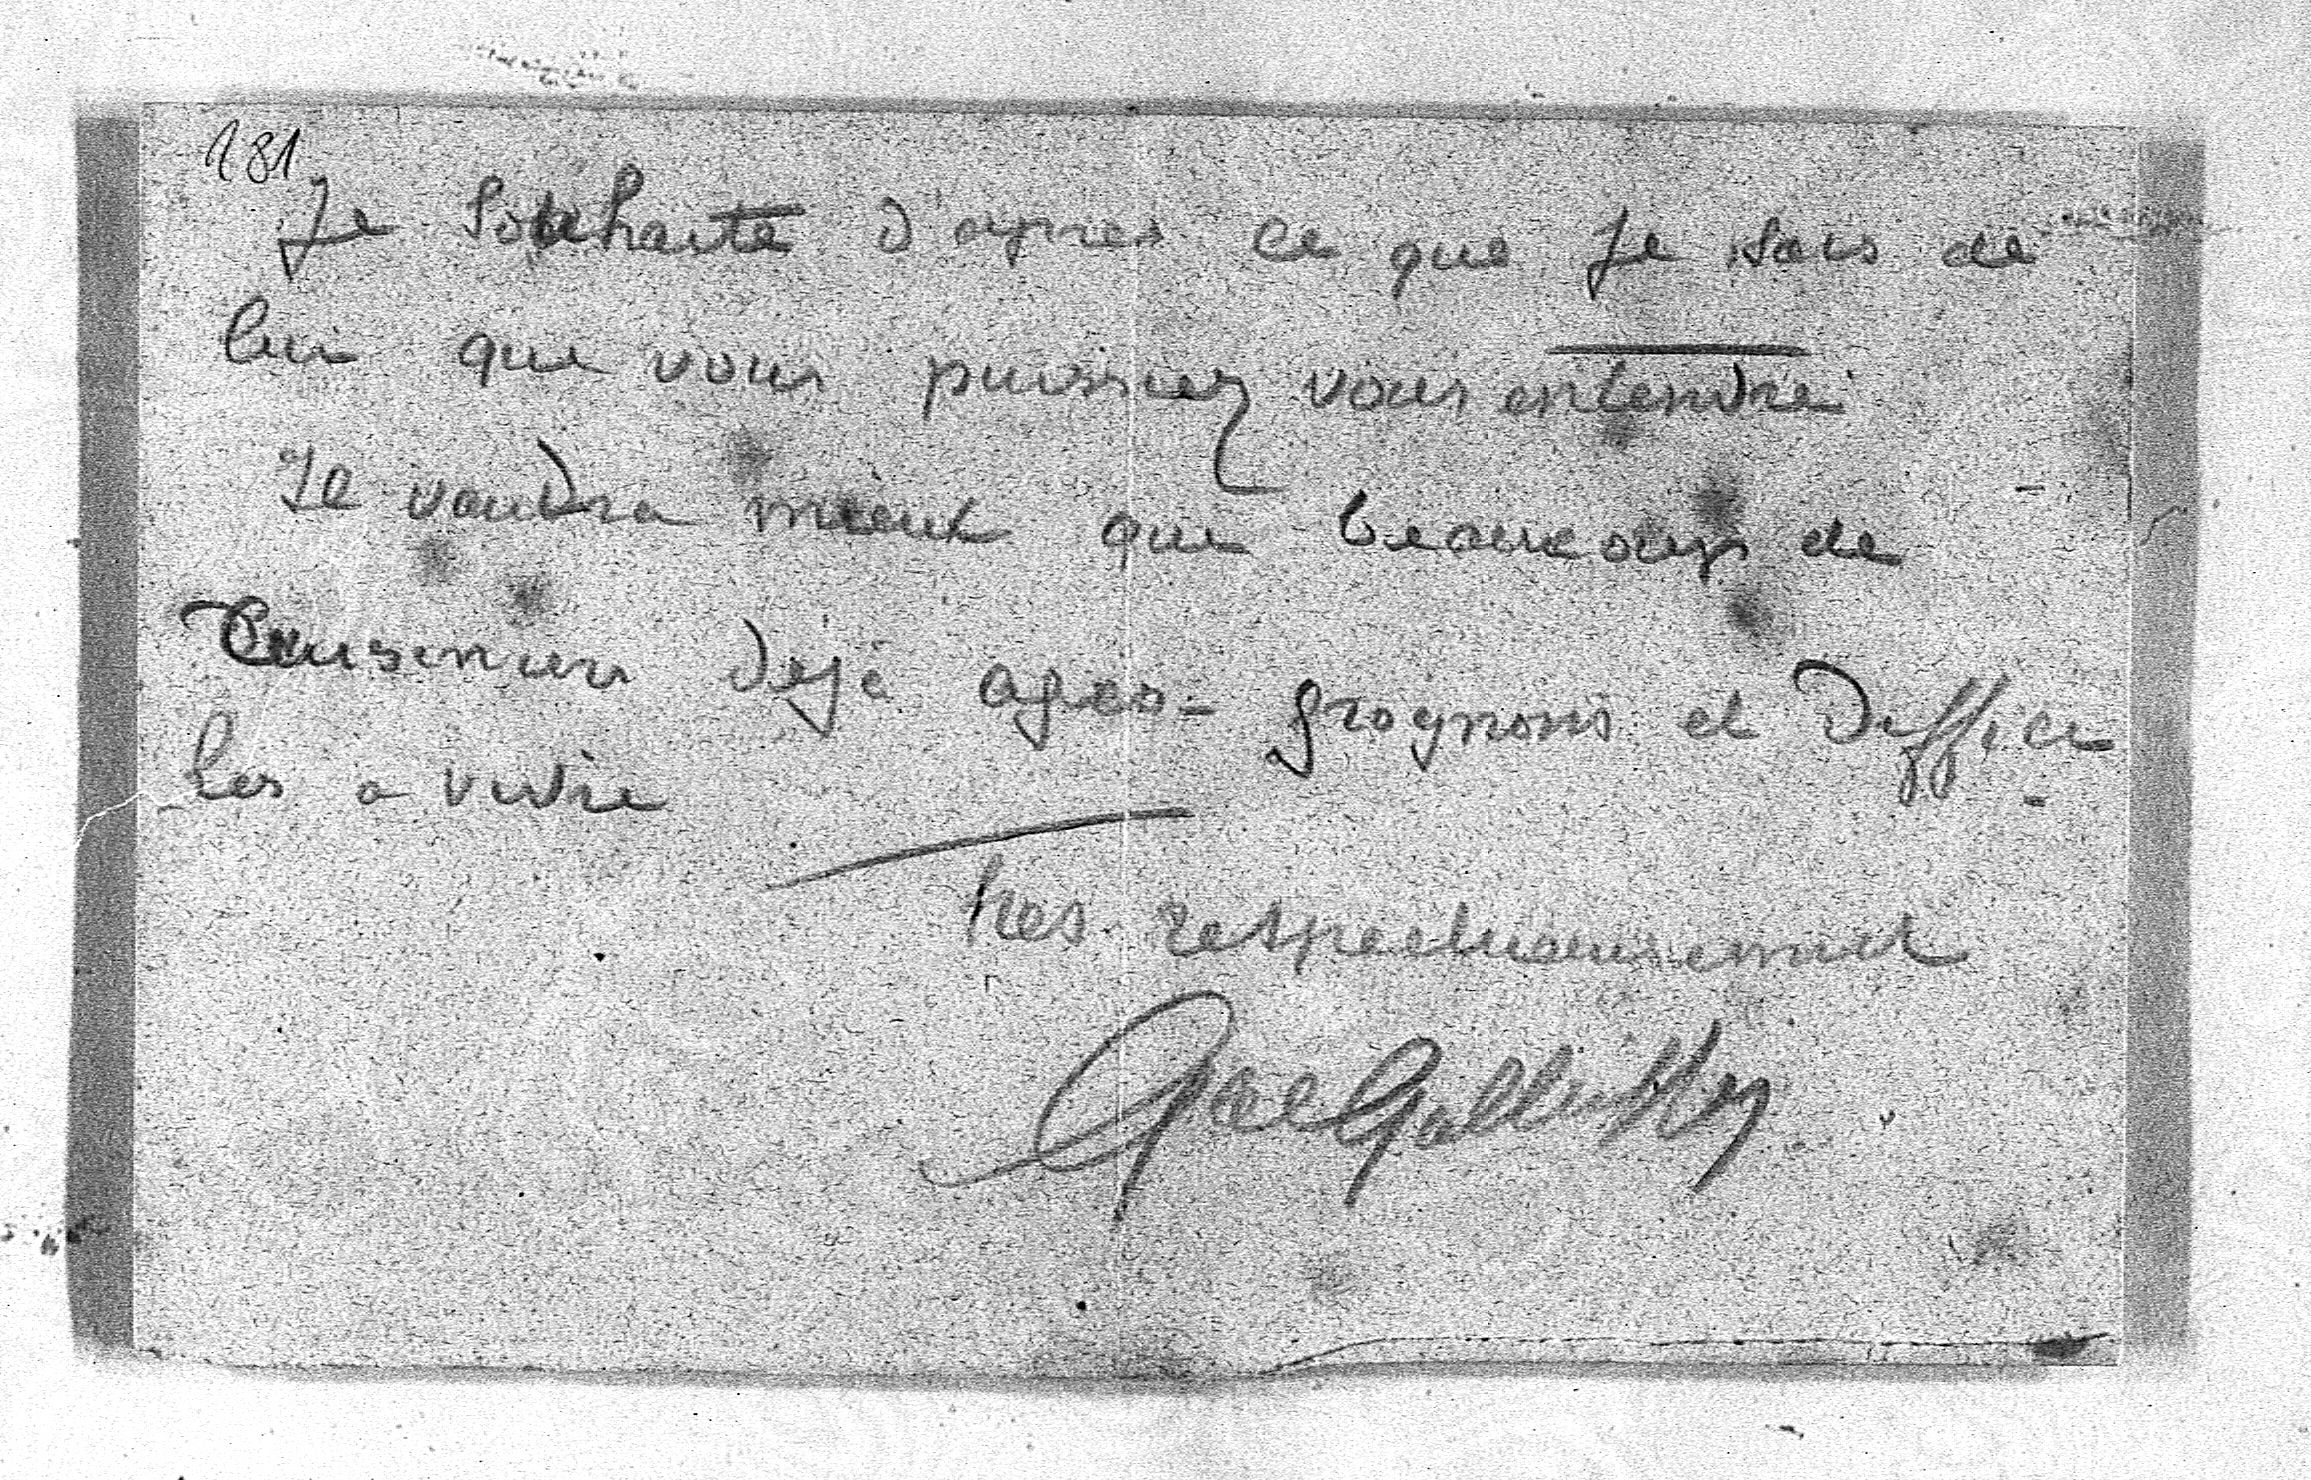 181
Je souhaite d'apres ce que Je sais de
lui que vous puissiez vous entendre
Il vaudra mieux que beaucoup de
Cuisiniers dejà ages - grognons et diffici
les a vivre
tres respectueusement